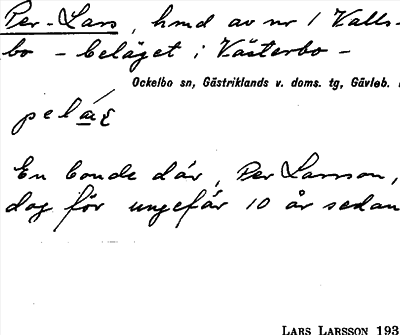 Per-Lars, hmd av nr 1 Valls-
bo - beläget i Västerbo -
Ockelbo sn, Gästriklands v. doms. tg, Gävleb.
pelaɛ
En bonde där, Per Larsson,
dog för ungefär 10 år sedan
LARS LARSSON 193